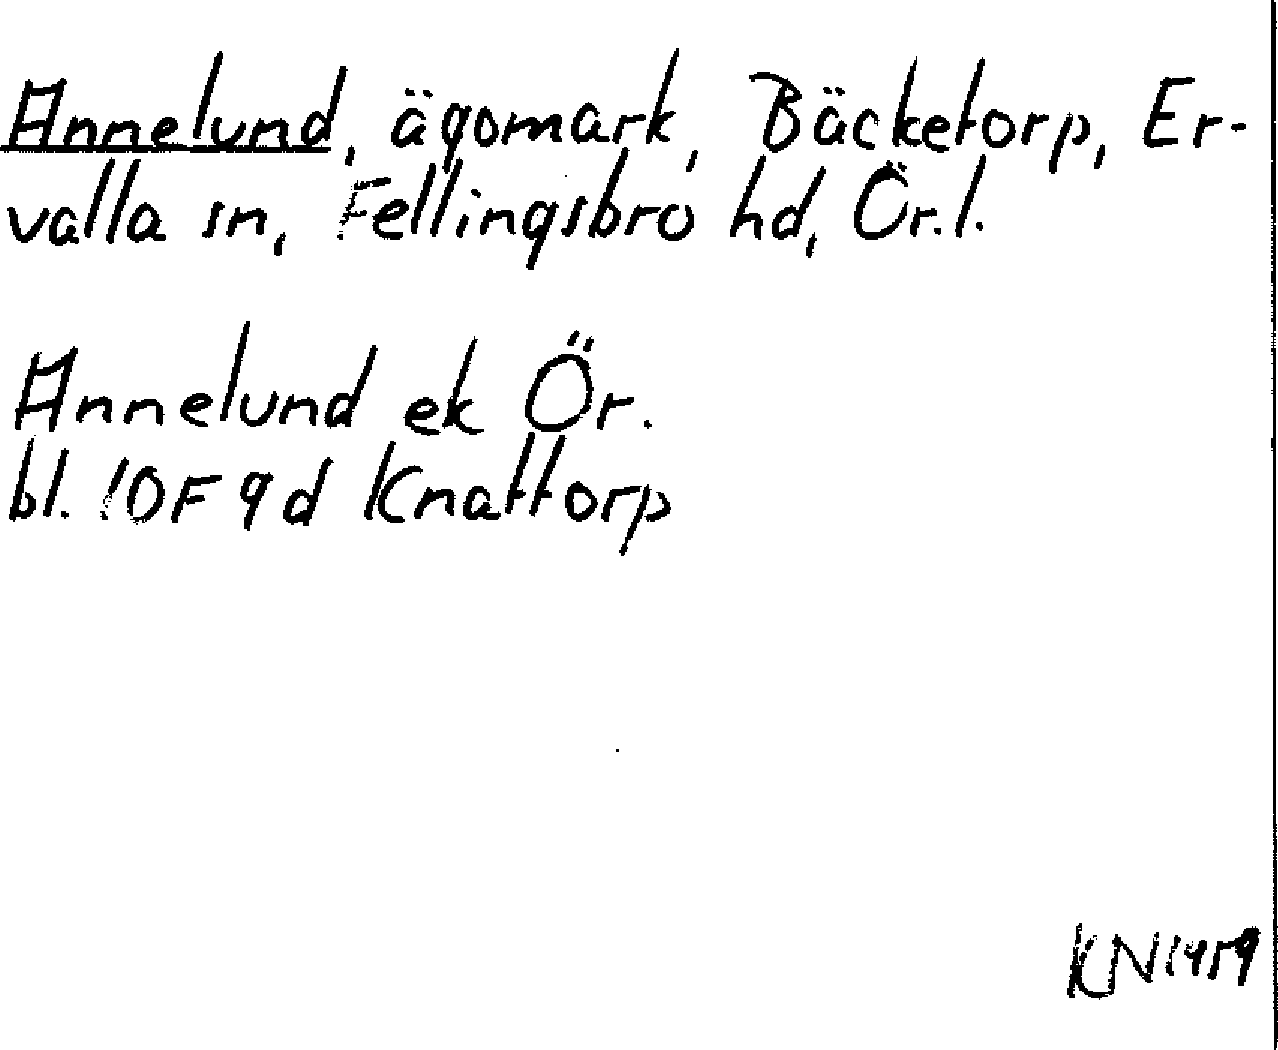 Annelund, ägomark, Bäcketorp, Er-
valla sn, Fellingsbro hd, Ör.l.
Annelund ek Ör.
bl. 10F 9d Knattorp
KN1959